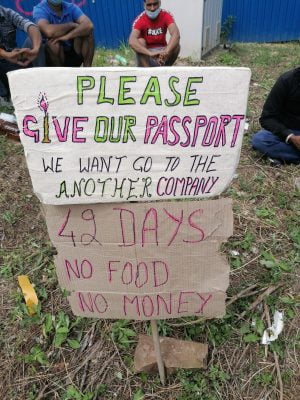 PLEASE
GIVE OUR PASSPORT
WE WANT GO TO THE
ANOTHER COMPANY
42 DAYS
NO FOOD
NO MONEY